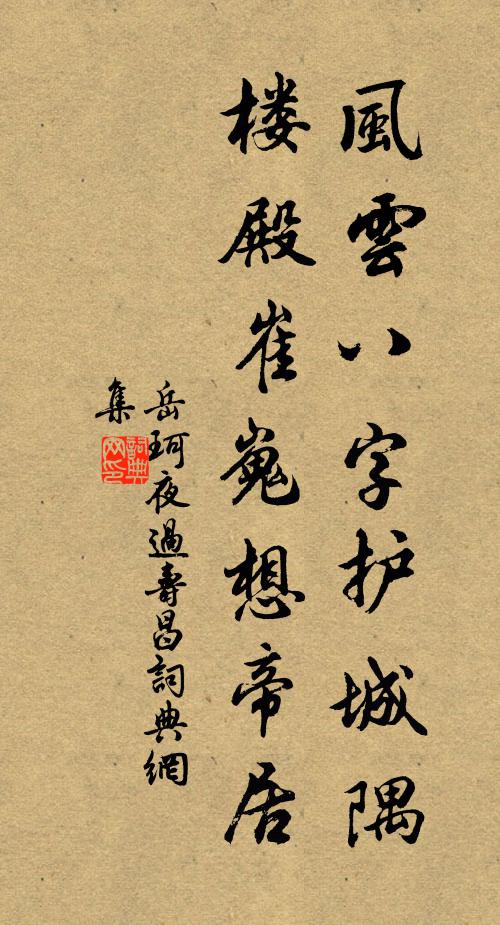 風雲八字护城隅
楼殿崔嵬想帝居
岳珂夜過壽昌詞典網
集
詞典
网印